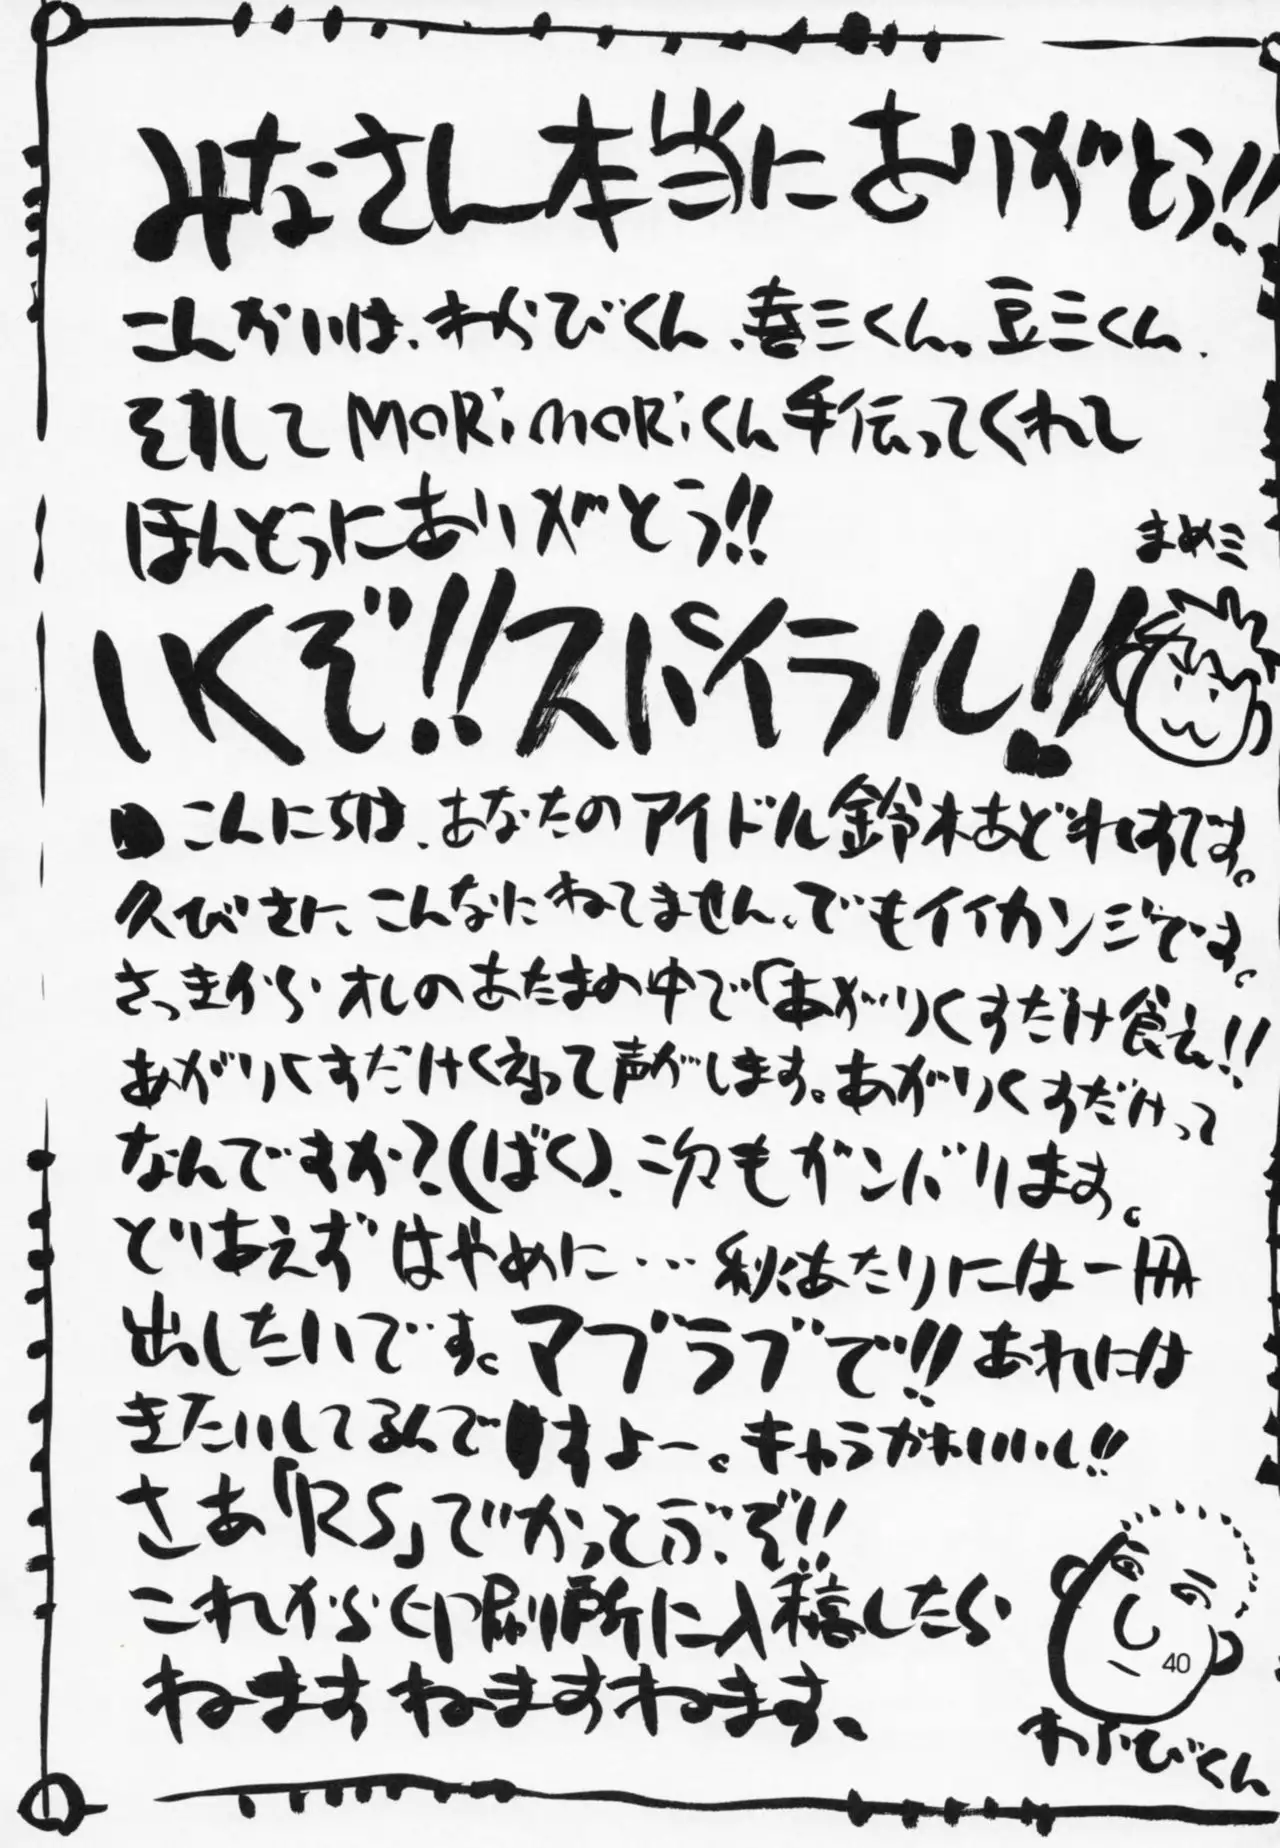 みなさん本当にありがとう!!
こんかいは、わらびくん、喜三くん。豆三くん、
そして MORiMORiくん手伝ってくれて
ほんとうにありがとう!!
まめミ
いくぞ!!スパイラル!!
こんにちは、あなたのアイドル鈴木あどれすです。
久びさに、こんなにねてません、でもイイカンジです。
さっきから オレのあたまの中で「あがりくすだけ食え!!
あがりくすだけくえって声がします。あがりくすだけって
なんですか?(ばく)、次もガンバリます。
とりあえず はやめに…秋あたりには一冊
出したいです。マブラブで!!あれには
きたいしてるんで すよー。キャラかわいいし!!
さあ「RS」でかっとぶぞ!!
これから印刷所に入稿したら
ねます ねますねます、
40
わらびくん